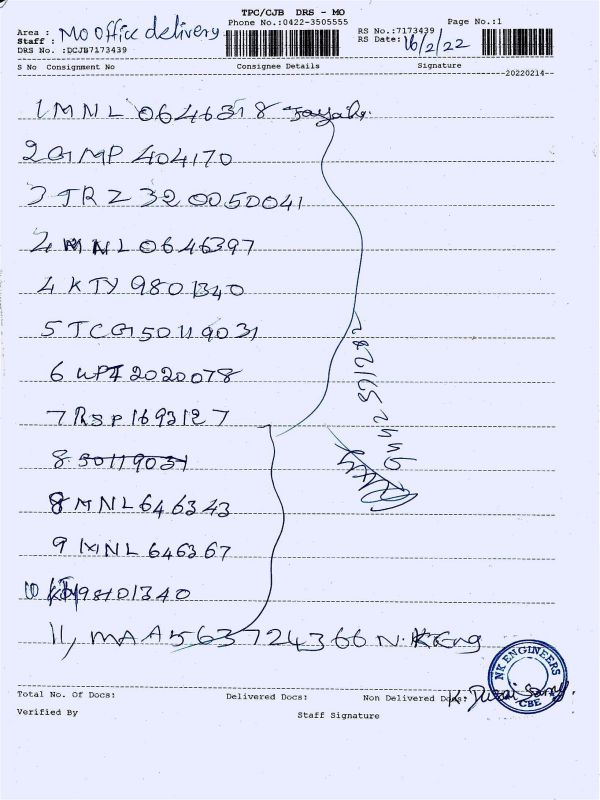 TPC/CJB DRS - MO
Phone No.:0422-3505555
Page No.:1
Area :
Staff : MO office delivery
DRS No. :DCJB7173439
RS No.:7173439
RS Date: 16/2/22
S No Consignment No Consignee Details Signature
20220214
1 MNL 0646318
2 GMP 404170
3 JRZ 320050041
4 MNL 0646397
4 KTY 9801340
5 TCG 50119031
6 2020078
7 RSP 1693127
8 50119031
8 MNL 646343
9 MNL 646367
10 98101340
11, MAA 563724366 N.K Eng
NK ENGINEERS
CBE
Total No. Of Docs: Delivered Docs: Non Delivered Docs:
Verified By Staff Signature